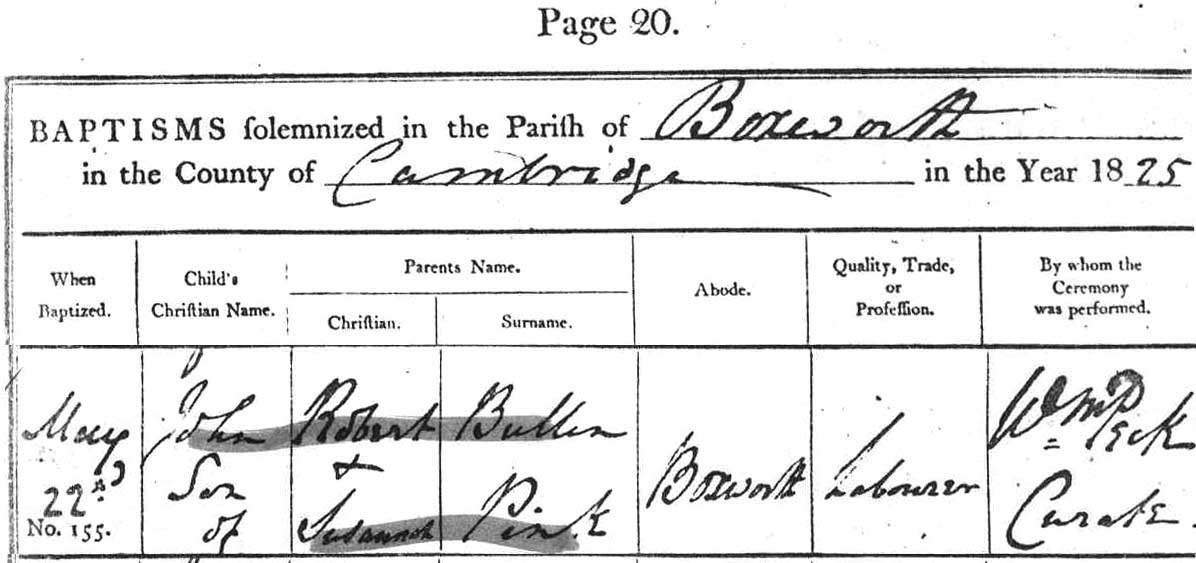 Page 20.
BAPTISMS ſolemnized in the Pariſh of Boxworth
in the County of Cambridge in the Year 1825
When
Baptized.
Child's
Chriſtian Name.
Parents Name.
Chriſtian.
Surname.
Abode.
Quality, Trade,
or
Profeſſion.
By whom the
Ceremony
was performed.
May
22d
No. 155.
John
Son
of
Robert
&
Susannah
Bullen
Pink
Boxworth
Labourer
Wm Peck
Curate.